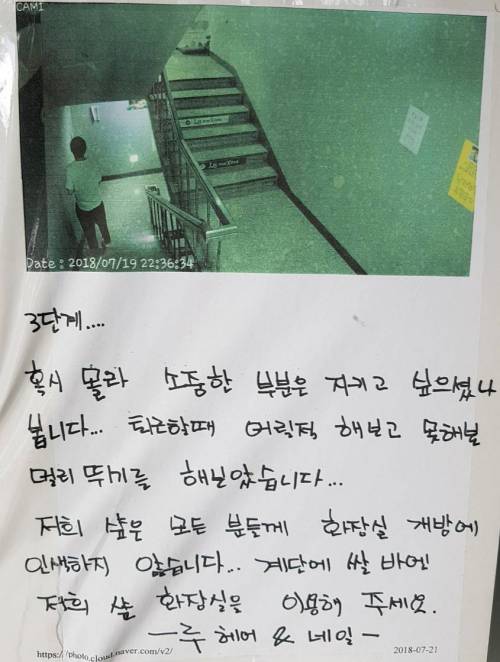 CAM1
Date : 2018/07/19 22:36:34
3단계....
혹시 몰라 소중한 부분은 지키고 싶으셨나
봅니다... 퇴근할때 어릴적 해보고 못해볼
멀리 뛰기를 해보았습니다...
저희 샾은 모든 분들께 화장실 개방에
인색하지 않습니다... 계단에 쌀 바엔
저희 샾 화장실을 이용해 주세요.
ㅡ루 헤어 & 네일ㅡ
https://photo.cloud.naver.com/v2/ 2018-07-21